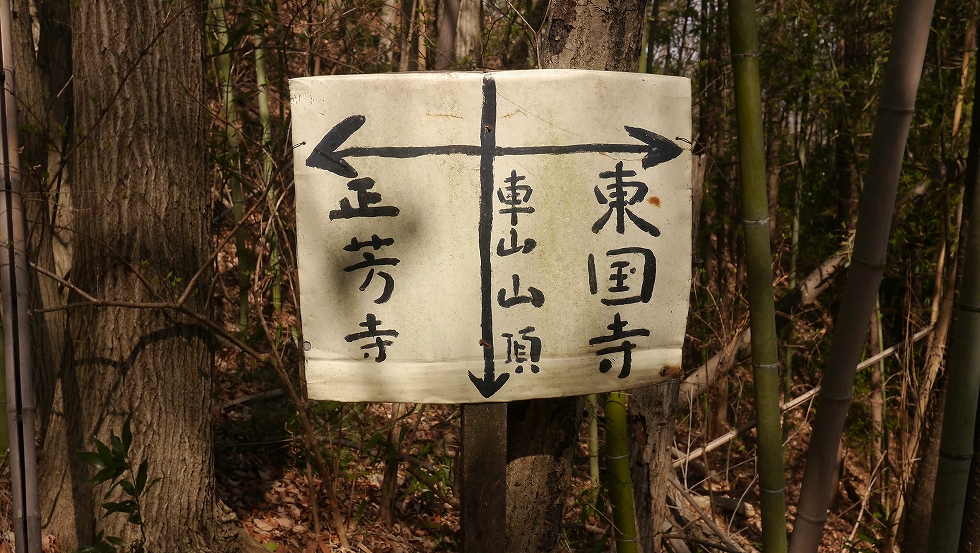 東国寺
車山山頂
正芳寺